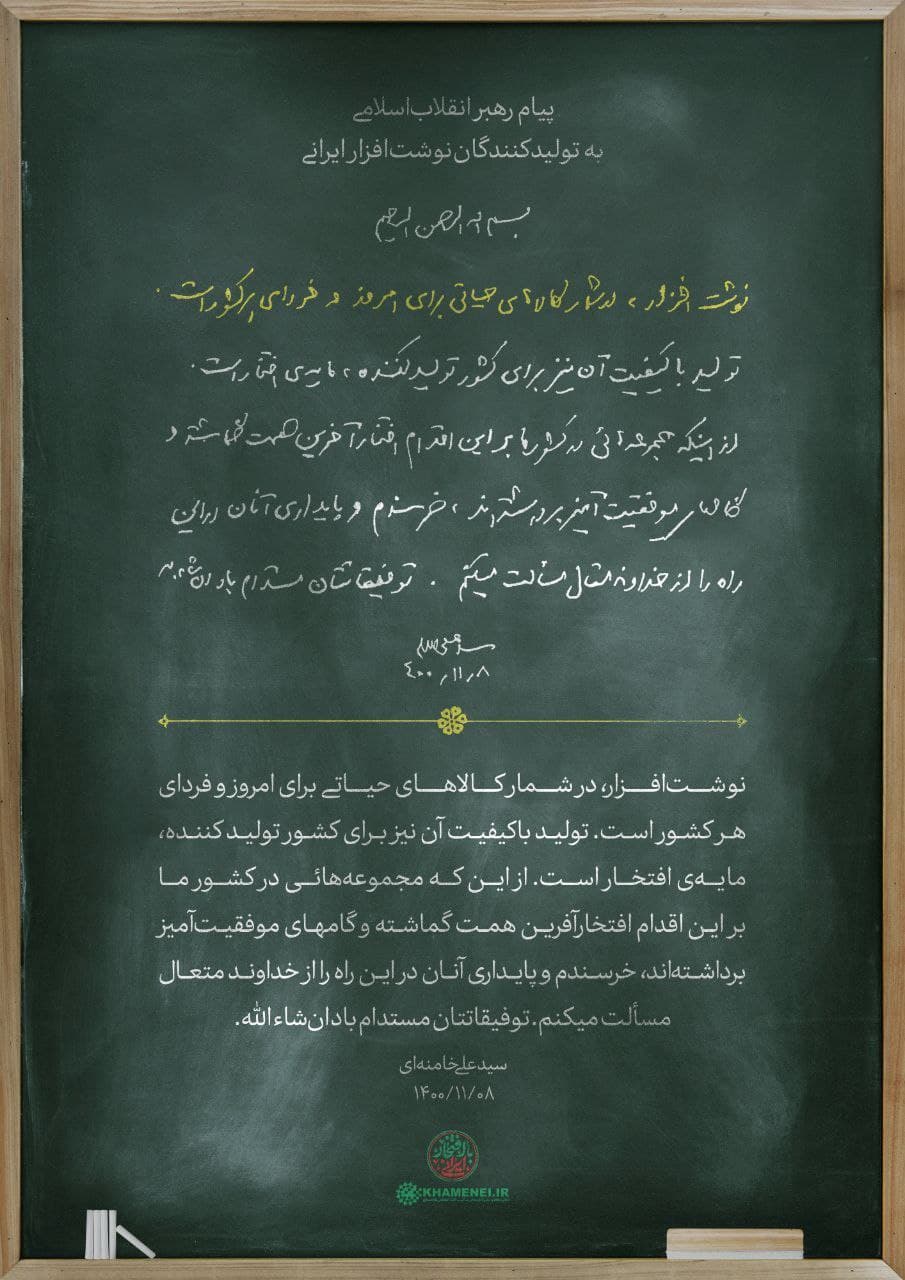 پیام رهبر انقلاب اسلامی
به تولیدکنندگان نوشت‌افزار ایرانی
بسم الله الرحمن الرحیم
نوشت افزار، در شمار کالاهای حیاتی برای امروز و فردای هر کشور است.
تولید باکیفیت آن نیز برای کشور تولید کننده، مایه‌ی افتخار است.
از اینکه مجموعه‌هائی در کشور ما بر این اقدام افتخارآفرین همت گماشته و
گامهای موفقیت آمیز برداشته‌اند، خرسندم و پایداری آنان در این
راه را از خداوند متعال مسألت میکنم. توفیقاتتان مستدام باد ان‌شاءالله
سید علی خامنه‌ای
۴۰۰/۱۱/۸
نوشت‌افزار، در شمار کالاهای حیاتی برای امروز و فردای
هر کشور است. تولید باکیفیت آن نیز برای کشور تولید کننده،
مایه‌ی افتخار است. از این که مجموعه‌هائی در کشور ما
بر این اقدام افتخارآفرین همت گماشته و گامهای موفقیت‌آمیز
برداشته‌اند، خرسندم و پایداری آنان در این راه را از خداوند متعال
مسألت میکنم. توفیقاتتان مستدام باد ان‌شاء‌الله.
سیدعلی‌خامنه‌ای
۱۴۰۰/۱۱/۰۸
با افتخار ایرانی
KHAMENEI.IR